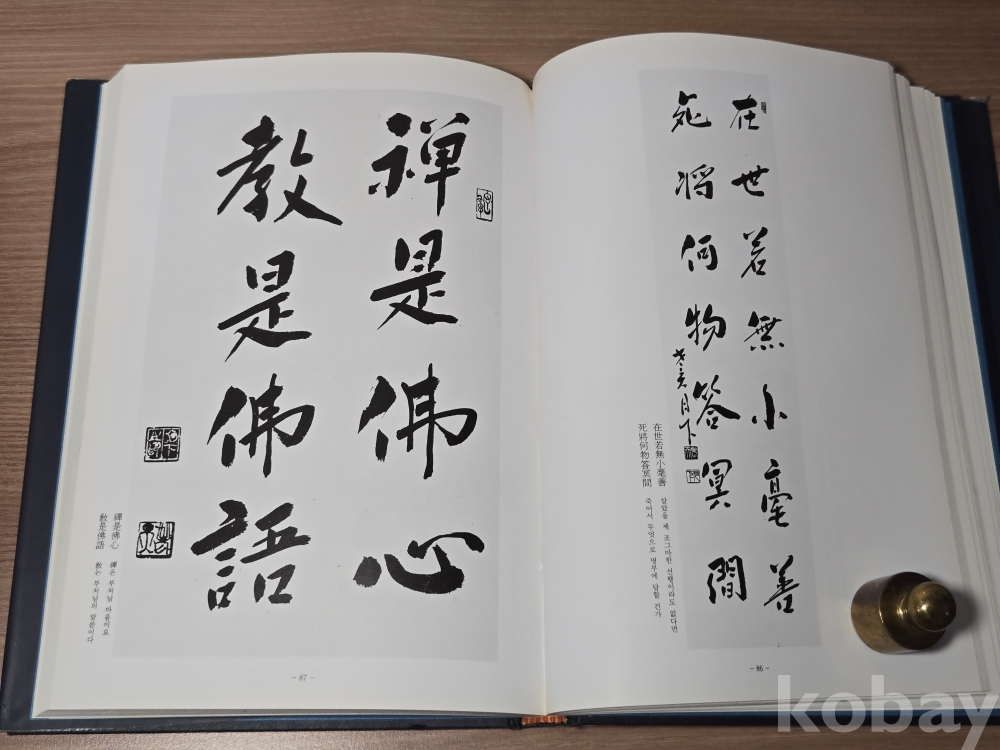 在世若無小毫善
死將何物答冥間
老炎月下
在世若無小毫善
死將何物答冥間
살았을 제 조그마한 선행이라도 없다면
죽어서 무엇으로 명부에 답할 건가
- 86 -
禪是佛心
教是佛語
禪是佛心
敎是佛語
禪은 부처님 마음이요
敎는 부처님의 말씀이다
- 87 -
kobay